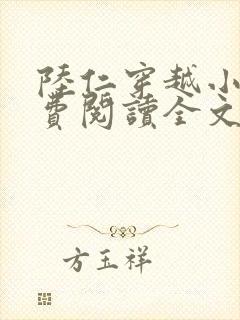 陸仁穿越小
費閱讀全文
方玉祥